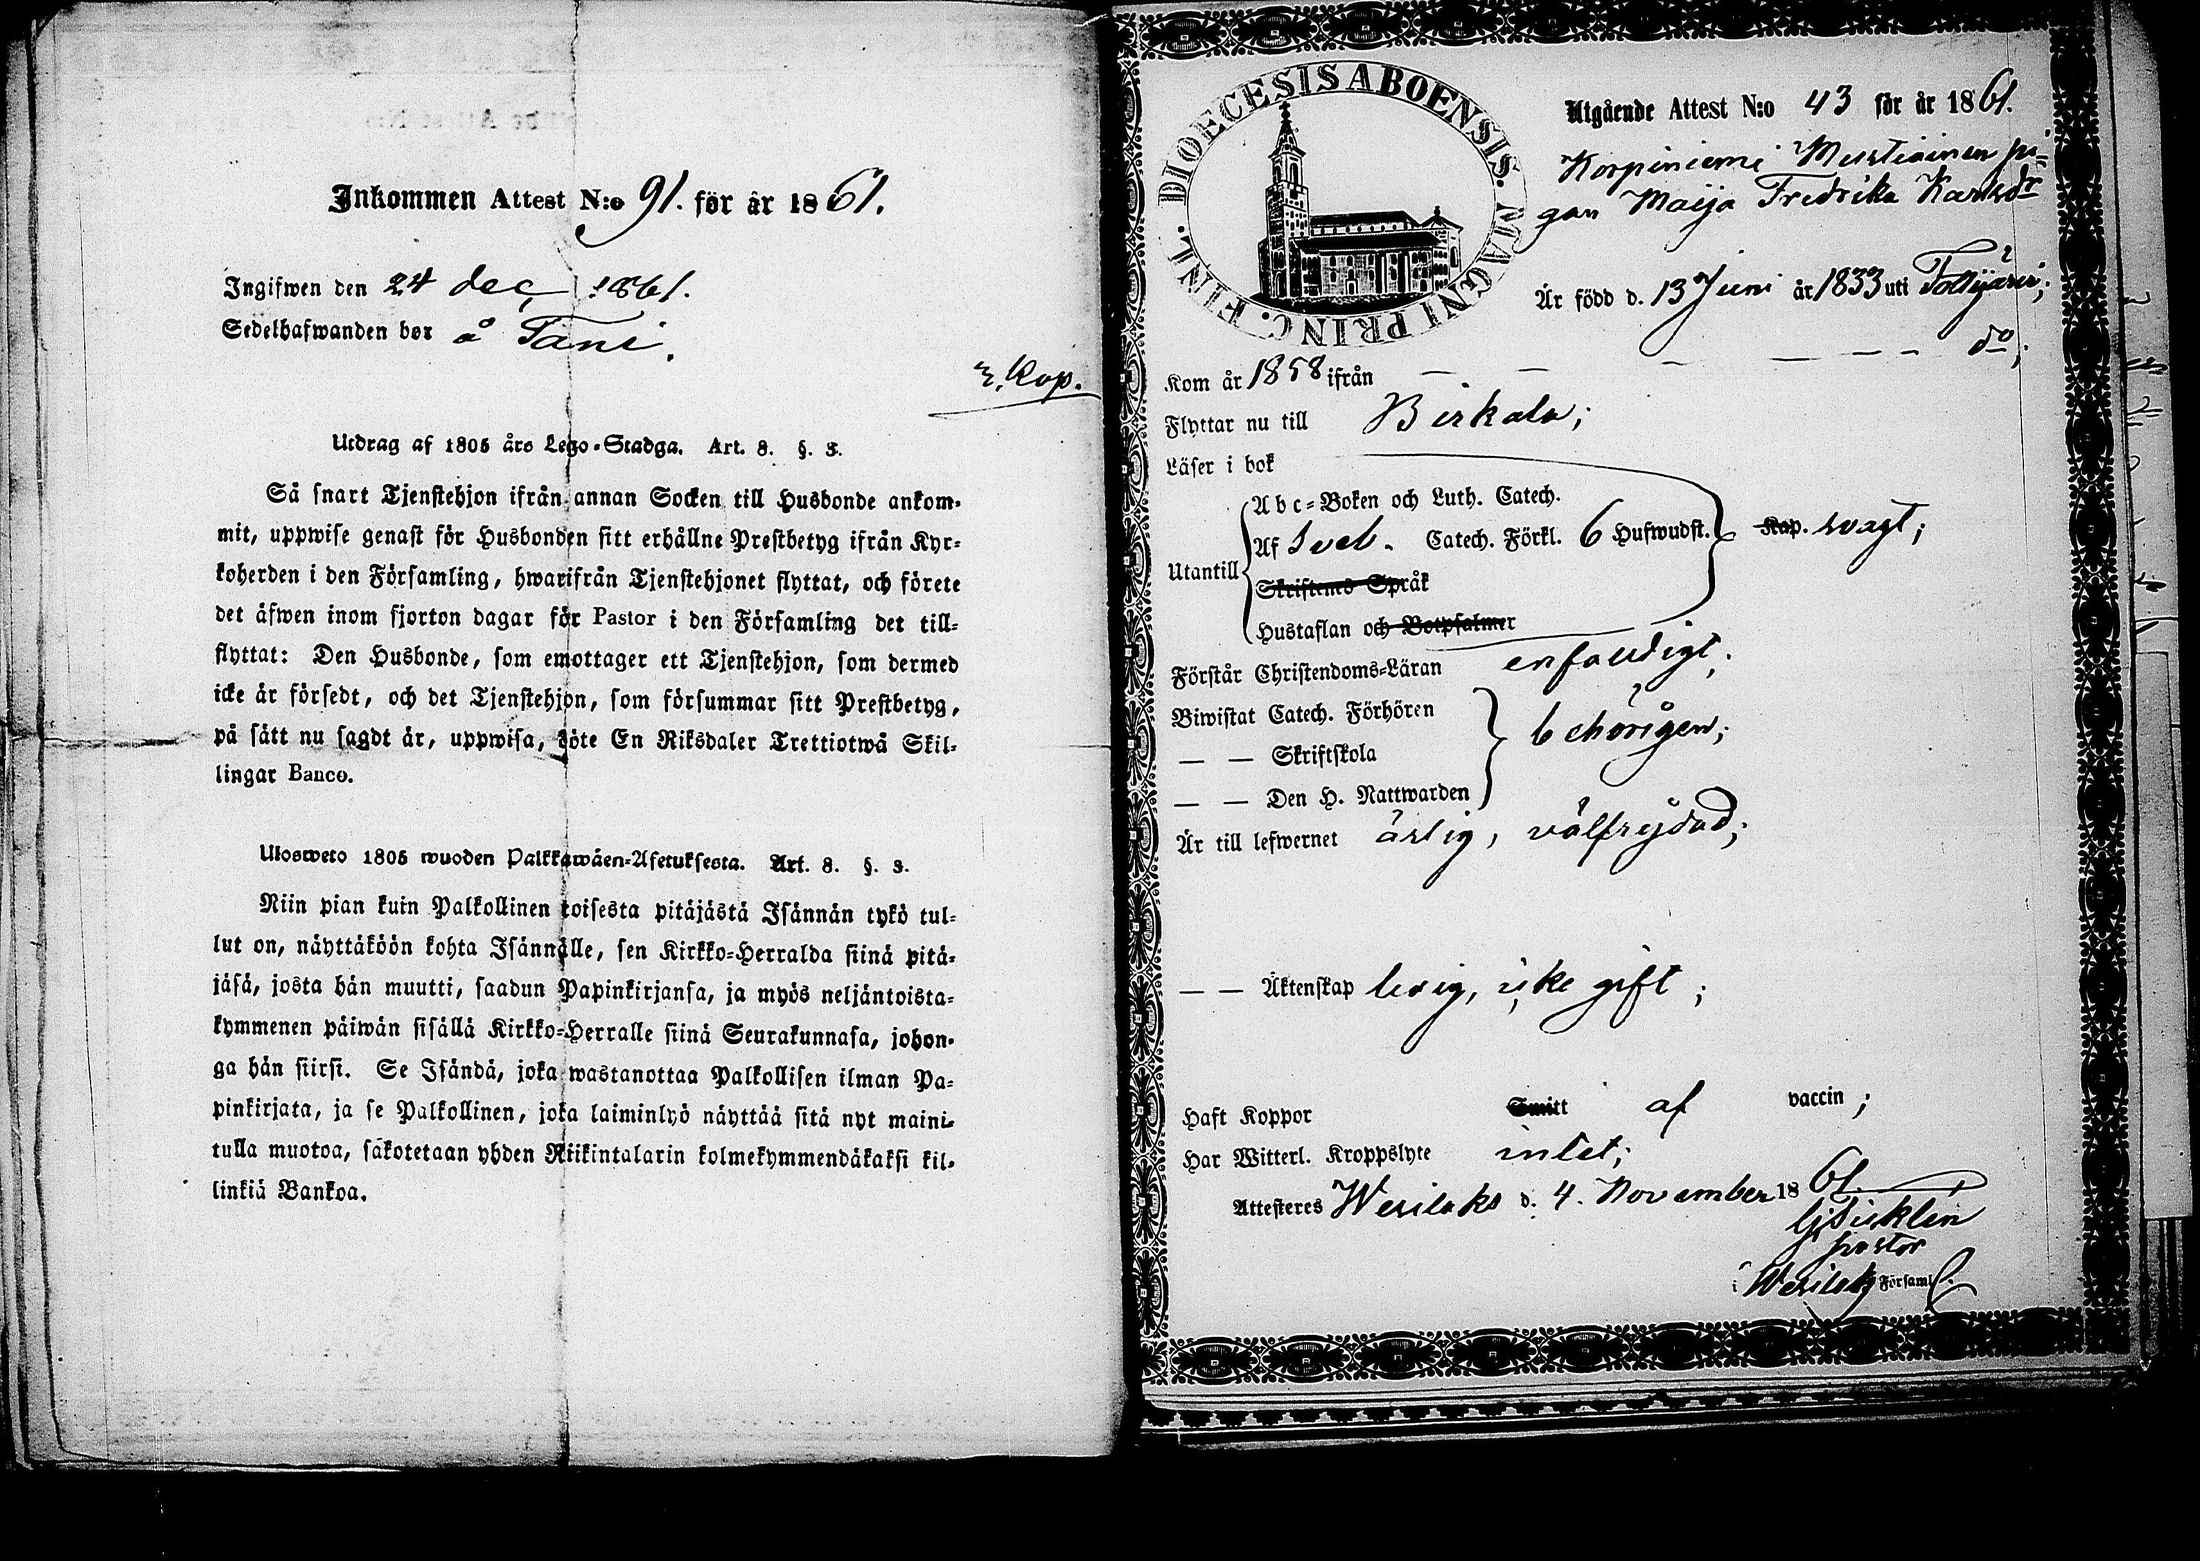 Inkommen Attest N:o 91. för år 1861.
Ingifwen den 24 dec. 1861.
Sedelhafwanden bor å Tani.
Kap.
Utdrag af 1805 års Lego-Stadga. Art. 8. §. 3.
Så snart Tjenstehjon ifrån annan Socken till Husbonde ankom-
mit, uppwise genast för Husbonden sitt erhållne Prestbetyg ifrån Kyr-
koherden i den Församling, hwarifrån Tjenstehjonet flyttat, och förete
det äfwen inom fjorton dagar för Pastor i den Församling det till-
flyttat: Den Husbonde, som emottager ett Tjenstehjon, som dermed
icke är försedt, och det Tjenstehjon, som försummar sitt Prestbetyg,
på sätt nu sagdt är, uppwisa, böte En Riksdaler Trettiotwå Skil-
lingar Banco.
Ulosweto 1805 wuoden Palkkawäen-Asetuksesta. Art. 8. §. 3.
Niin pian kuin Palkollinen toisesta pitäjästä Isännän tykö tul-
lut on, näyttäköön kohta Isännälle, sen Kirkko-Herralda siinä pitä-
jäsä, josta hän muutti, saadun Papinkirjansa, ja myös neljäntoista-
kymmenen päiwän sisällä Kirkko-Herralle siinä Seurakunnasa, johon-
ga hän siirsi. Se Isändä, joka wastanottaa Palkollisen ilman Pa-
pinkirjata, ja se Palkollinen, joka laiminlyö näyttää sitä nyt maini-
tulla muotoa, sakotetaan yhden Riikintalarin kolmekymmendäkaksi kil-
linkiä Bankoa.
DIOECESIS ABOENSIS. MAGNI PRINC. FINL.
Utgående Attest N:o 43 för år 1861.
Korpiniemi pi-
gan Maija Fredrika Karlsdr
Är född d. 13 Juni år 1833 uti
do;
Kom år 1858 ifrån — — — — — —
Flyttar nu till Birkala;
Läser i bok
Abc-Boken och Luth. Catech.
Af Sveb. Catech. Förkl. 6 Hufwudst. Kap. svagt;
Utantill
Skriftenes Språk
Hustaflan och Botpsalmer
Förstår Christendoms-Läran enfaldigt;
Biwistat Catech. Förhören
behörigen;
— — Skriftskola
— — Den H. Nattwarden
Är till lefwernet ärlig, välfrejdad;
— — Äktenskap ledig, icke gift;
Haft Koppor Smitt af vaccin;
Har Witterl. Kroppslyte intet;
Attesteres Wesilaks d. 4. November 1861.
pastor
i Wesilaks Församl.